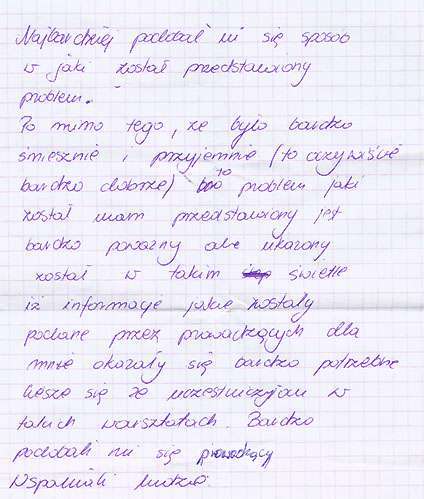 Najbardziej podobał mi się sposób
w jaki został przedstawiony
problem.
Po mimo tego, że było bardzo
śmiesznie i przyjemnie (to oczywiście
bardzo dobrze) to problem jaki
został nam przedstawiony jest
bardzo poważny ale ukazany
został w takim świetle
iż informacje jakie zostały
podane przez prowadzących dla
mnie okazały się bardzo potrzebne
Cieszę się że uczestniczyłam w
takich warsztatach. Bardzo
podobali mi się prowadzący
Wspaniali ludzie.